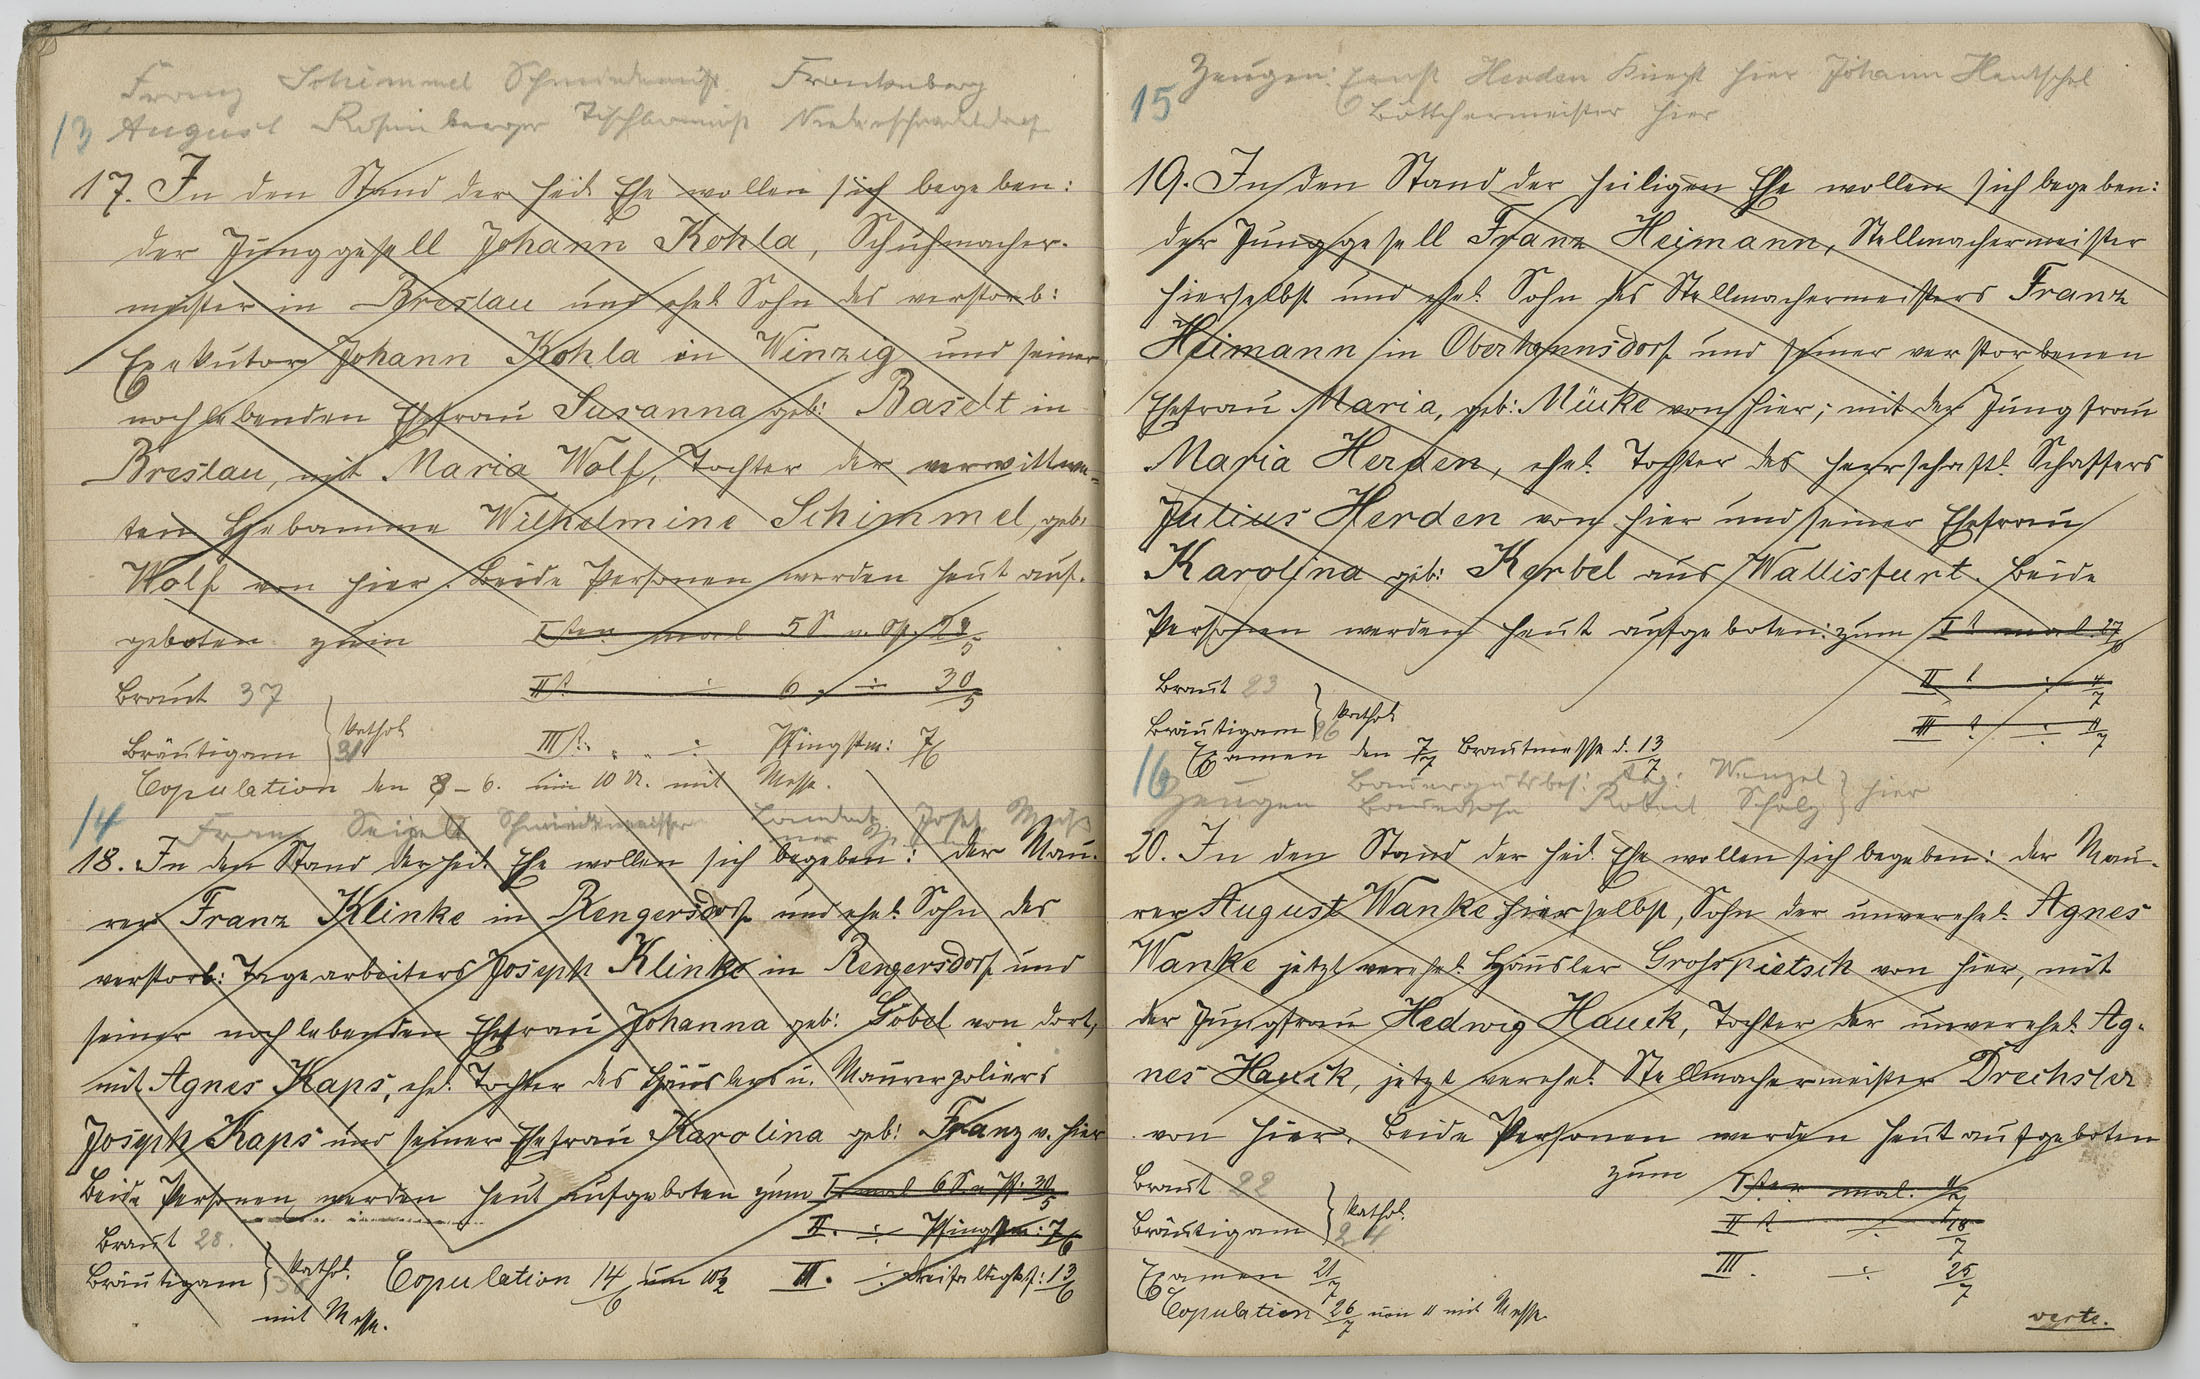 Franz Schimmel Schmiedemstr Frankenberg
13 August Rosenberger Tischlermstr Niederschwedeldorf
17. In den Stand der heil. Ehe wollen sich begeben:
der Junggesell Johann Kohla, Schuhmacher-
meister in Breslau und ehel. Sohn des verstorb:
Exekutor Johann Kohla in Winzig und seiner
noch lebenden Ehefrau Susanna geb: Baselt in
Breslau, mit Maria Wolf, Tochter der verwittwe-
ten Hebamme Wilhelmine Schimmel, geb:
Wolf von hier. Beide Personen werden heut auf-
geboten zum Iten mal 5 S n. Op. 23/5
Braut 37 IIt ÷ 6 ÷ 30/5
Bräutigam 31 } kathol. IIIt. „ „ ÷ Pfingstm: 7/6
Copulation den 8-6. um 10 U. mit Messe.
14 Franz Seipelt Schmiedemeister Josef
18. In den Stand der heil. Ehe wollen sich begeben: der Mau-
rer Franz Klinke in Rengersdorf und ehel. Sohn des
verstorb: Tagearbeiters Joseph Klinke in Rengersdorf und
seiner noch lebenden Ehefrau Johanna geb: Göbel von dort,
mit Agnes Kaps, ehel. Tochter des Häuslers u. Maurerpoliers
Joseph Kaps und seiner Ehefrau Karolina geb: Franz v. hier
Beide Personen werden heut aufgeboten zum I. mal 6 S. n. Pf. 30/5
II. ÷ Pfingstm: 7/6
Braut 28.
Bräutigam } kathol. Copulation 14/6 um 10½ III. ÷ Dreifaltigktsf: 13/6
mit Messe.
15 Zeugen: Ernst Herden Knecht hier Johann Hentschel
Böttchermeister hier
19. In den Stand der heiligen Ehe wollen sich begeben:
der Junggesell Franz Heimann, Stellmachermeister
hierselbst und ehel. Sohn des Stellmachermeisters Franz
Heimann in Oberhannsdorf und seiner verstorbenen
Ehefrau Maria, geb: Mücke von hier; mit der Jungfrau
Maria Herden, ehel. Tochter des herrschaftl. Schaffers
Julius Herden von hier und seiner Ehefrau
Karolina geb: Kerbel aus Wallisfurt. Beide
Personen werden heut aufgeboten: zum It mal 27/6
Braut 23 II t ÷ 4/7
Bräutigam 26 } kathol. III t ÷ 11/7
Examen den 7/7 Brautmesse d. 13/7
16 Zeugen Bauergutsbes: Aug: Wenzel
Bauersohn Robert Scholz } hier
20. In den Stand der heil. Ehe wollen sich begeben: der Mau-
rer August Wanke hierselbst, Sohn der unverehel. Agnes
Wanke jetzt verehel. Häusler Grosspietsch von hier, mit
der Jungfrau Hedwig Hauck, Tochter der unverehel. Ag-
nes Hauck, jetzt verehel. Stellmachermeister Drechsler
von hier. Beide Personen werden heut aufgeboten
zum Iten mal. 11/7
Braut 22
Bräutigam 24 } kathol. II t ÷ 18/7
Examen 21/7 III. ÷ 25/7
Copulation 26/7 um 11 mit Messe.
verte.